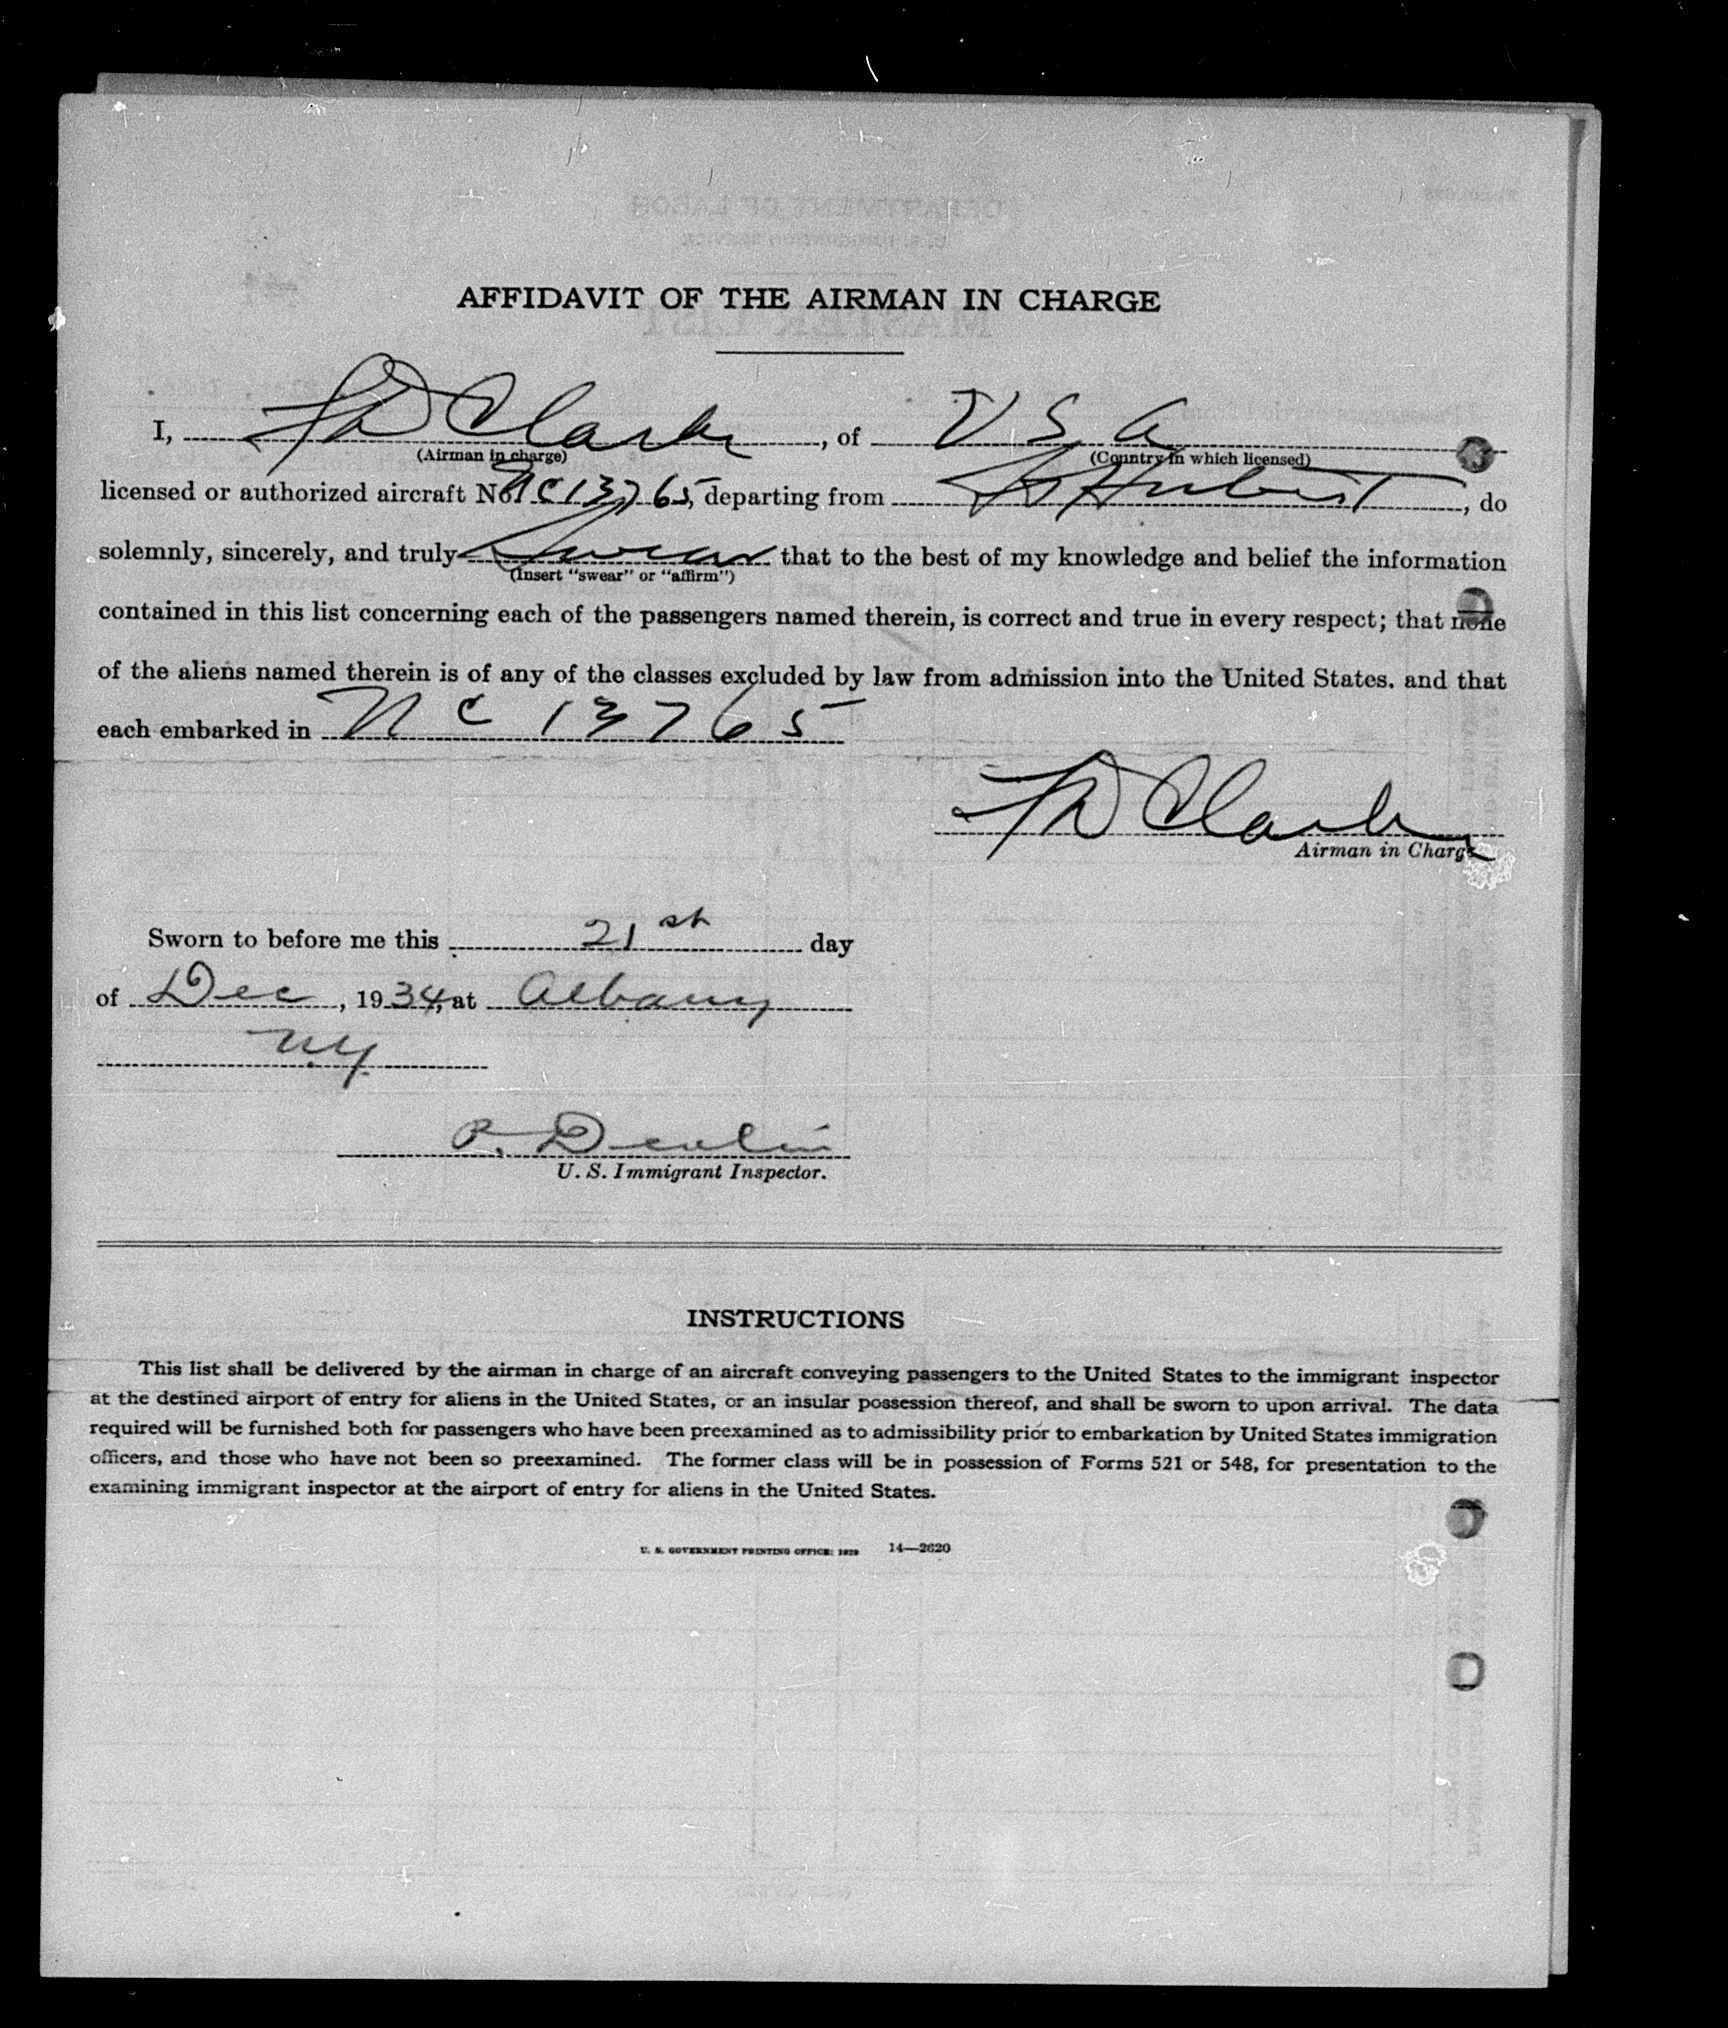 AFFIDAVIT OF THE AIRMAN IN CHARGE
I, F D Clark, of U S A
(Airman in charge) (Country in which licensed)
licensed or authorized aircraft No. NC13765, departing from St Hubert, do
solemnly, sincerely, and truly swear that to the best of my knowledge and belief the information
(Insert "swear" or "affirm")
contained in this list concerning each of the passengers named therein, is correct and true in every respect; that none
of the aliens named therein is of any of the classes excluded by law from admission into the United States, and that
each embarked in NC 13765
F D Clark
Airman in Charge
Sworn to before me this 21st day
of Dec, 1934, at Albany
N.Y.
P. Devlin
U. S. Immigrant Inspector.
INSTRUCTIONS
This list shall be delivered by the airman in charge of an aircraft conveying passengers to the United States to the immigrant inspector
at the destined airport of entry for aliens in the United States, or an insular possession thereof, and shall be sworn to upon arrival. The data
required will be furnished both for passengers who have been preexamined as to admissibility prior to embarkation by United States immigration
officers, and those who have not been so preexamined. The former class will be in possession of Forms 521 or 548, for presentation to the
examining immigrant inspector at the airport of entry for aliens in the United States.
U. S. GOVERNMENT PRINTING OFFICE: 1929 14—2620